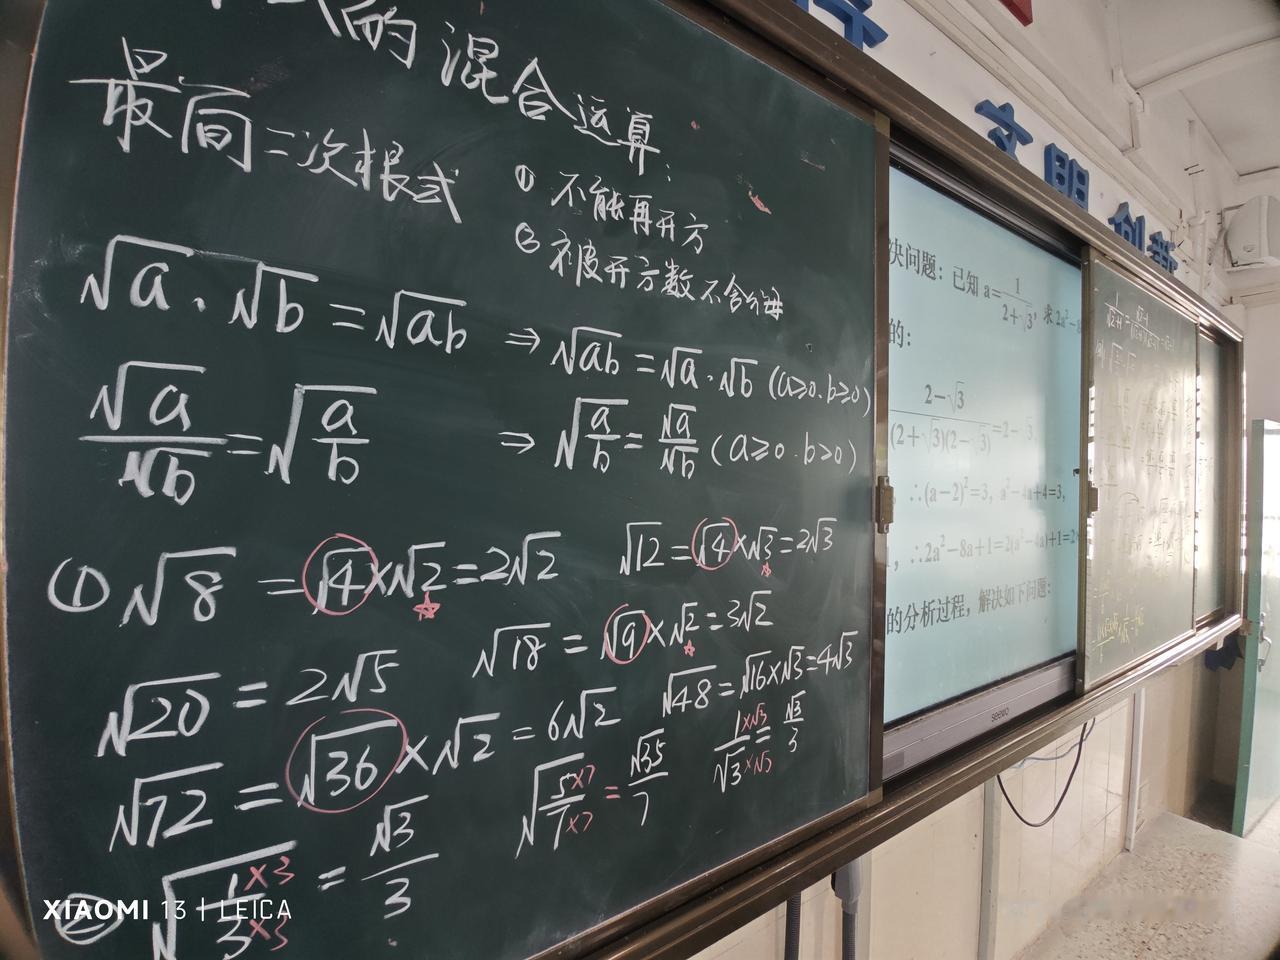 的混合运算
最简二次根式:
① 不能再开方
② 被开方数不含分母
√a · √b = √ab ⇒ √ab = √a · √b (a≥0, b≥0)
√a/√b = √(a/b) ⇒ √(a/b) = √a/√b (a≥0, b>0)
① √8 = √4×√2 = 2√2
√12 = √4×√3 = 2√3
√18 = √9×√2 = 3√2
√20 = 2√5
√48 = √16×√3 = 4√3
√72 = √36×√2 = 6√2
√(5×7/7×7) = √35/7
1×√3/√3×√3 = √3/3
② √(1×3/3×3) = √3/3
文明 创新
决问题: 已知 a=1/(2+√3), 求 2a²-8
的:
(2-√3)/((2+√3)(2-√3))=2-√3,
∴(a-2)²=3, a²-4a+4=3,
∴2a²-8a+1=2(a²-4a)+1=2
的分析过程, 解决如下问题:
seewo
XIAOMI 13 | LEICA